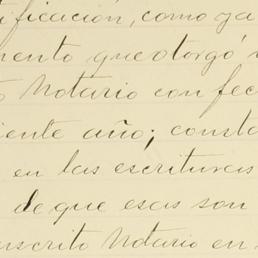 tificación, como ya
mento que otorgó
Notario con fec
iente año; consta
en las escrituras
de que esas son
uscrito Notario en